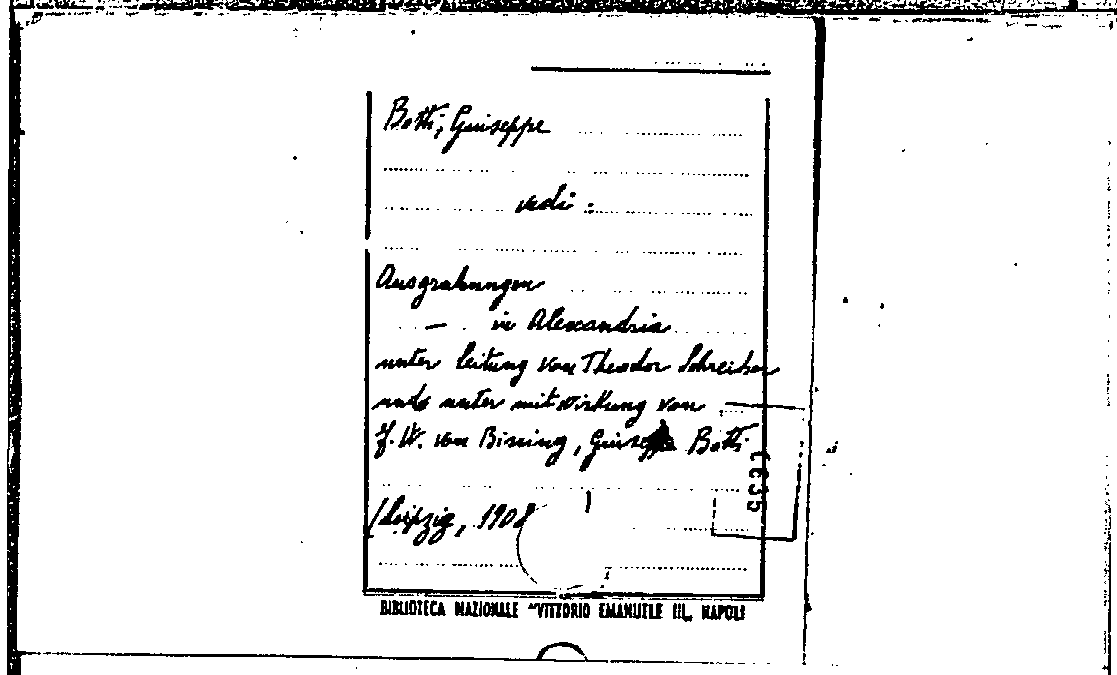 Botti, Giuseppe
vedi :
Ausgrabungen
— in Alexandria
unter leitung von Theodor Schreiber
und unter mitwirkung von
F. W. von Bissing, Giuseppe Botti
(Leipzig, 1908
BIBLIOTECA NAZIONALE "VITTORIO EMANUELE III„ NAPOLI